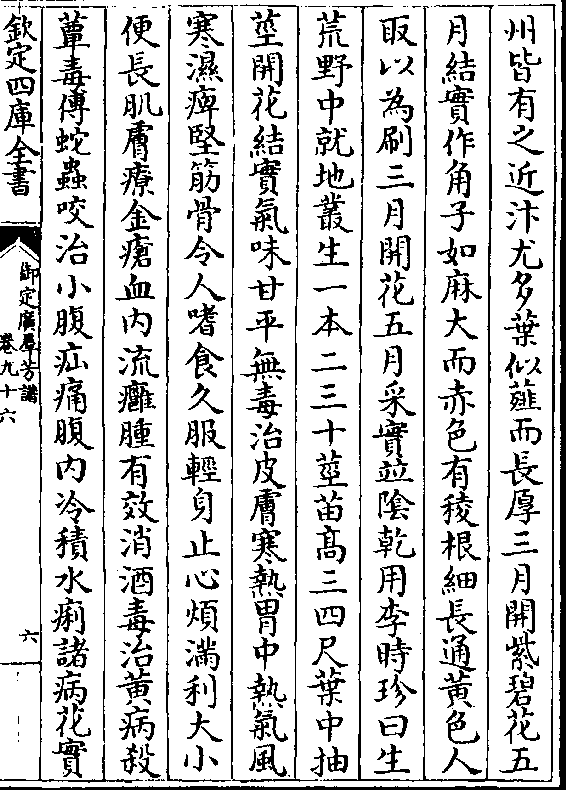 州皆有之近汴尤多葉似薤而長厚三月開紫碧花五
月結實作角子如麻大而赤色有稜根細長通黃色人
取以為刷三月開花五月采實竝陰乾用李時珍曰生
荒野中就地叢生一本二三十莖苗高三四尺葉中抽
莖開花結實氣味甘平無毒治皮膚寒熱胃中熱氣風
寒濕痺堅筋骨令人嗜食久服輕身止心煩滿利大小
便長肌膚療金瘡血内流癰腫有效消酒毒治黃病殺
蕈毒傅蛇蟲咬治小腹疝痛腹内冷積水痢諸病花實
欽定四庫全書
御定廣羣芳譜
卷九十六
六